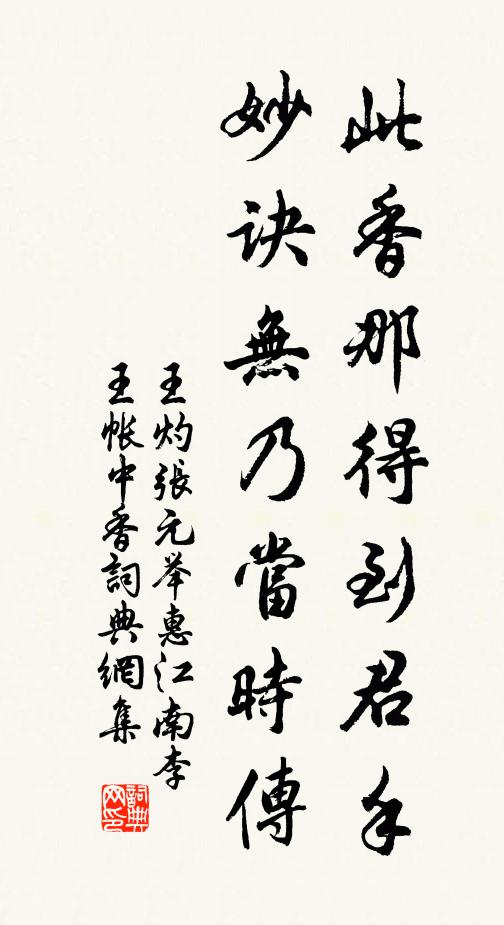 此香那得到君手
妙訣無乃當時傳
王灼張元举惠江南李
王帐中香詞典網集
詞典
网印